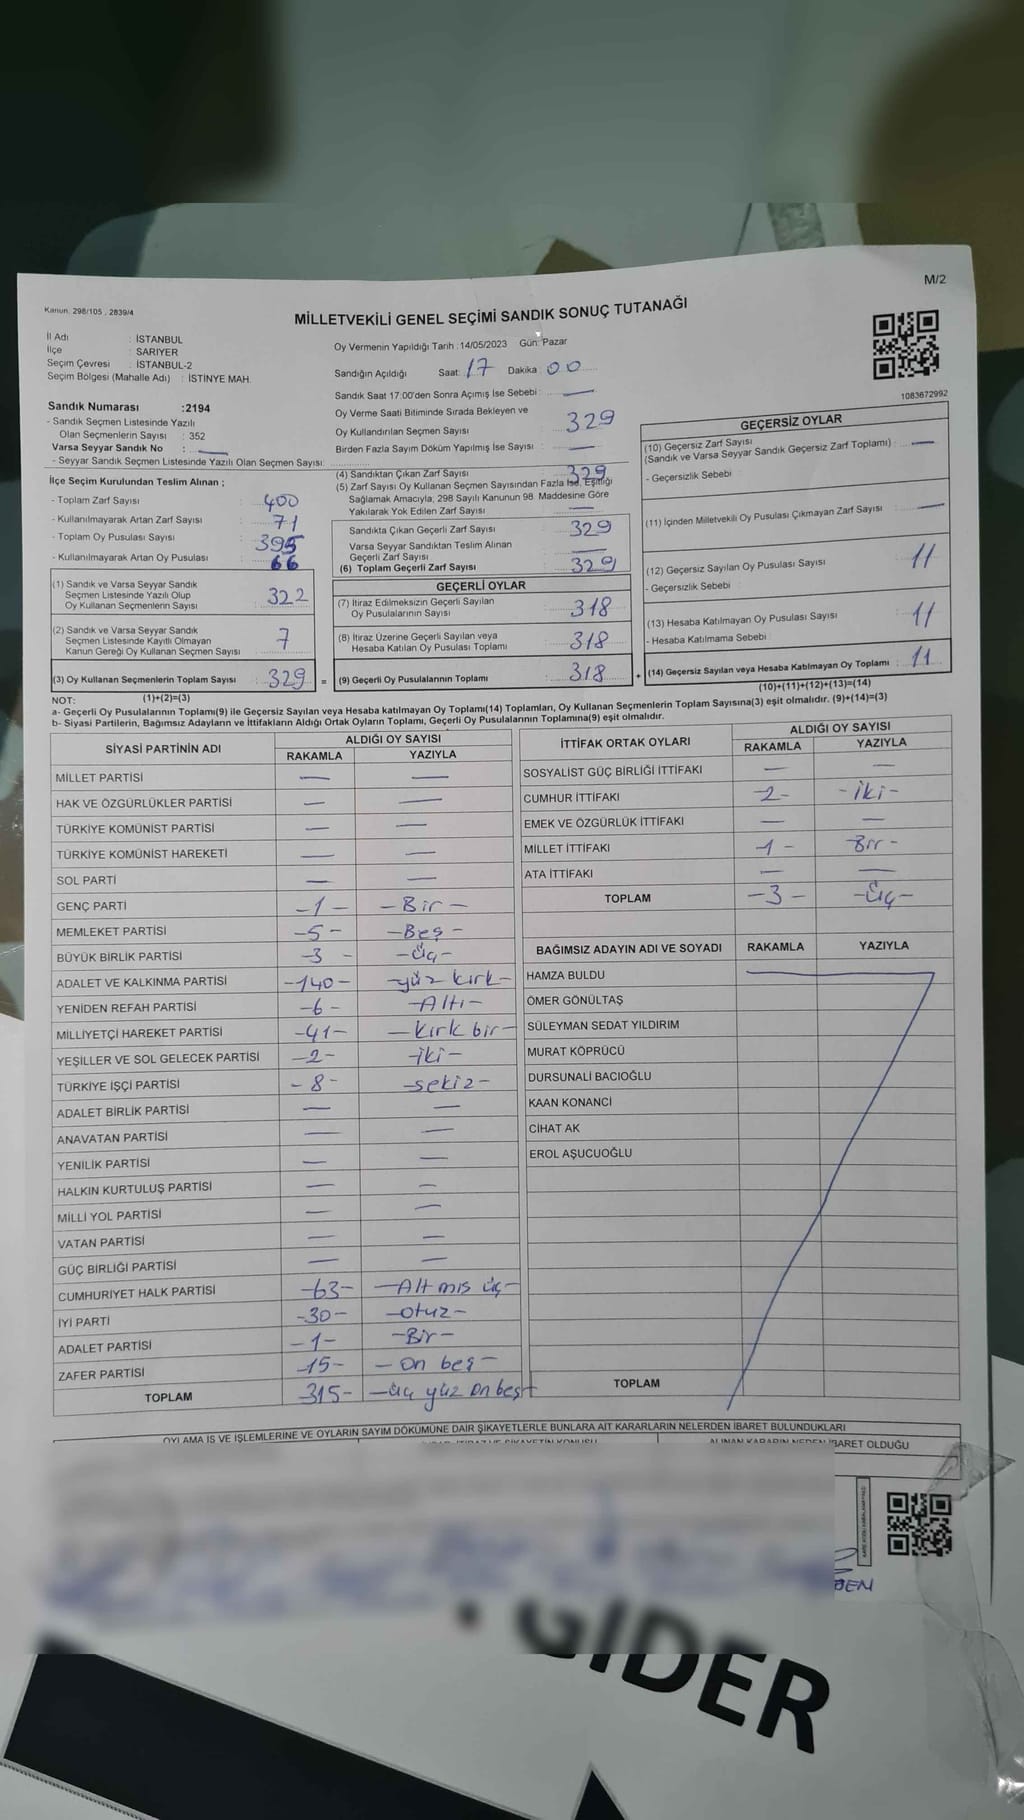 M/2
Kanun. 298/105 , 2839/4
MİLLETVEKİLİ GENEL SEÇİMİ SANDIK SONUÇ TUTANAĞI
İl Adı : İSTANBUL
İlçe : SARIYER
Seçim Çevresi : İSTANBUL-2
Seçim Bölgesi (Mahalle Adı) : İSTİNYE MAH.
Sandık Numarası :2194
- Sandık Seçmen Listesinde Yazılı
Olan Seçmenlerin Sayısı : 352
Varsa Seyyar Sandık No : —
- Seyyar Sandık Seçmen Listesinde Yazılı Olan Seçmen Sayısı:
İlçe Seçim Kurulundan Teslim Alınan ;
- Toplam Zarf Sayısı : 400
- Kullanılmayarak Artan Zarf Sayısı : 71
- Toplam Oy Pusulası Sayısı : 395
- Kullanılmayarak Artan Oy Pusulası : 66
(1) Sandık ve Varsa Seyyar Sandık
Seçmen Listesinde Yazılı Olup
Oy Kullanan Seçmenlerin Sayısı : 322
(2) Sandık ve Varsa Seyyar Sandık
Seçmen Listesinde Kayıtlı Olmayan
Kanun Gereği Oy Kullanan Seçmen Sayısı : 7
(3) Oy Kullanan Seçmenlerin Toplam Sayısı : 329 =
Oy Vermenin Yapıldığı Tarih :14/05/2023 Gün: Pazar
Sandığın Açıldığı Saat: 17 Dakika: 00
Sandık Saat 17:00'den Sonra Açımış İse Sebebi : —
Oy Verme Saati Bitiminde Sırada Bekleyen ve
Oy Kullandırılan Seçmen Sayısı : 329
Birden Fazla Sayım Döküm Yapılmış İse Sayısı : —
(4) Sandıktan Çıkan Zarf Sayısı : 329
(5) Zarf Sayısı Oy Kullanan Seçmen Sayısından Fazla İse, Eşitliği
Sağlamak Amacıyla, 298 Sayılı Kanunun 98. Maddesine Göre
Yakılarak Yok Edilen Zarf Sayısı : —
Sandıkta Çıkan Geçerli Zarf Sayısı : 329
Varsa Seyyar Sandıktan Teslim Alınan
Geçerli Zarf Sayısı : —
(6) Toplam Geçerli Zarf Sayısı : 329
GEÇERLİ OYLAR
(7) İtiraz Edilmeksizin Geçerli Sayılan
Oy Pusulalarının Sayısı : 318
(8) İtiraz Üzerine Geçerli Sayılan veya
Hesaba Katılan Oy Pusulası Toplamı : 318
(9) Geçerli Oy Pusulalarının Toplamı : 318 +
1083672992
GEÇERSİZ OYLAR
(10) Geçersiz Zarf Sayısı
(Sandık ve Varsa Seyyar Sandık Geçersiz Zarf Toplamı) : —
- Geçersizlik Sebebi :
(11) İçinden Milletvekili Oy Pusulası Çıkmayan Zarf Sayısı : —
(12) Geçersiz Sayılan Oy Pusulası Sayısı : 11
- Geçersizlik Sebebi :
(13) Hesaba Katılmayan Oy Pusulası Sayısı : 11
- Hesaba Katılmama Sebebi :
(14) Geçersiz Sayılan veya Hesaba Katılmayan Oy Toplamı : 11
NOT: (1)+(2)=(3)
(10)+(11)+(12)+(13)=(14)
a- Geçerli Oy Pusulalarının Toplamı(9) ile Geçersiz Sayılan veya Hesaba katılmayan Oy Toplamı(14) Toplamları, Oy Kullanan Seçmenlerin Toplam Sayısına(3) eşit olmalıdır. (9)+(14)=(3)
b- Siyasi Partilerin, Bağımsız Adayların ve İttifakların Aldığı Ortak Oyların Toplamı, Geçerli Oy Pusulalarının Toplamına(9) eşit olmalıdır.
SİYASİ PARTİNİN ADI ALDIĞI OY SAYISI
RAKAMLA YAZIYLA
MİLLET PARTİSİ — —
HAK VE ÖZGÜRLÜKLER PARTİSİ — —
TÜRKİYE KOMÜNİST PARTİSİ — —
TÜRKİYE KOMÜNİST HAREKETİ — —
SOL PARTİ — —
GENÇ PARTİ -1- -Bir-
MEMLEKET PARTİSİ -5- -Beş-
BÜYÜK BİRLİK PARTİSİ -3- -Üç-
ADALET VE KALKINMA PARTİSİ -140- -yüz kırk-
YENİDEN REFAH PARTİSİ -6- -Altı-
MİLLİYETÇİ HAREKET PARTİSİ -41- -kırk bir-
YEŞİLLER VE SOL GELECEK PARTİSİ -2- -iki-
TÜRKİYE İŞÇİ PARTİSİ -8- -sekiz-
ADALET BİRLİK PARTİSİ — —
ANAVATAN PARTİSİ — —
YENİLİK PARTİSİ — —
HALKIN KURTULUŞ PARTİSİ — —
MİLLİ YOL PARTİSİ — —
VATAN PARTİSİ — —
GÜÇ BİRLİĞİ PARTİSİ — —
CUMHURİYET HALK PARTİSİ -63- -Altmıs üç-
İYİ PARTİ -30- -otuz-
ADALET PARTİSİ -1- -Bir-
ZAFER PARTİSİ -15- -on beş-
TOPLAM 315- -üç yüz on beş-
İTTİFAK ORTAK OYLARI ALDIĞI OY SAYISI
RAKAMLA YAZIYLA
SOSYALİST GÜÇ BİRLİĞİ İTTİFAKI — —
CUMHUR İTTİFAKI -2- -iki-
EMEK VE ÖZGÜRLÜK İTTİFAKI — —
MİLLET İTTİFAKI -1- Bir-
ATA İTTİFAKI — —
TOPLAM -3- -Üç-
BAĞIMSIZ ADAYIN ADI VE SOYADI RAKAMLA YAZIYLA
HAMZA BULDU
ÖMER GÖNÜLTAŞ
SÜLEYMAN SEDAT YILDIRIM
MURAT KÖPRÜCÜ
DURSUNALİ BACIOĞLU
KAAN KONANCİ
CİHAT AK
EROL AŞUCUOĞLU
TOPLAM
OYLAMA İŞ VE İŞLEMLERİNE VE OYLARIN SAYIM DÖKÜMÜNE DAİR ŞİKAYETLERLE BUNLARA AİT KARARLARIN NELERDEN İBARET BULUNDUKLARI
ALINAN KARARIN NEDEN İBARET OLDUĞU
GİDER